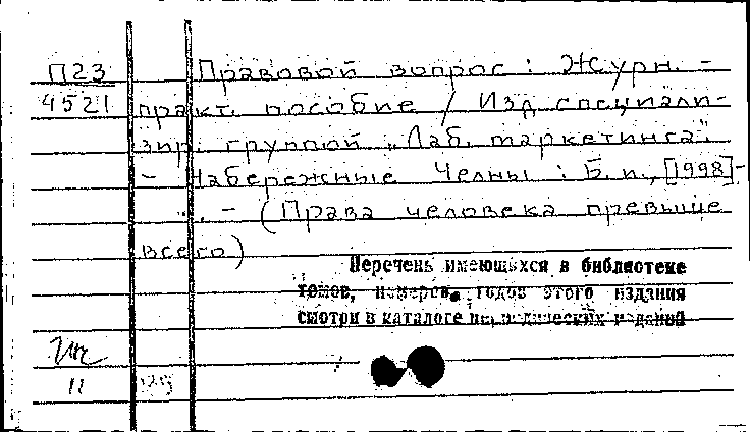 П23
4521
Правовой вопрос : Журн. -
практ. пособие / Изд. специали-
зир. группой „Лаб. маркетинга".
- Набережные Челны : Б. и., [1998]-
. . - (Права человека превыше
всего)
Перечень имеющихся в библиотеке
томов, номеров, годов этого издания
смотри в каталоге периодических изданий
11 125